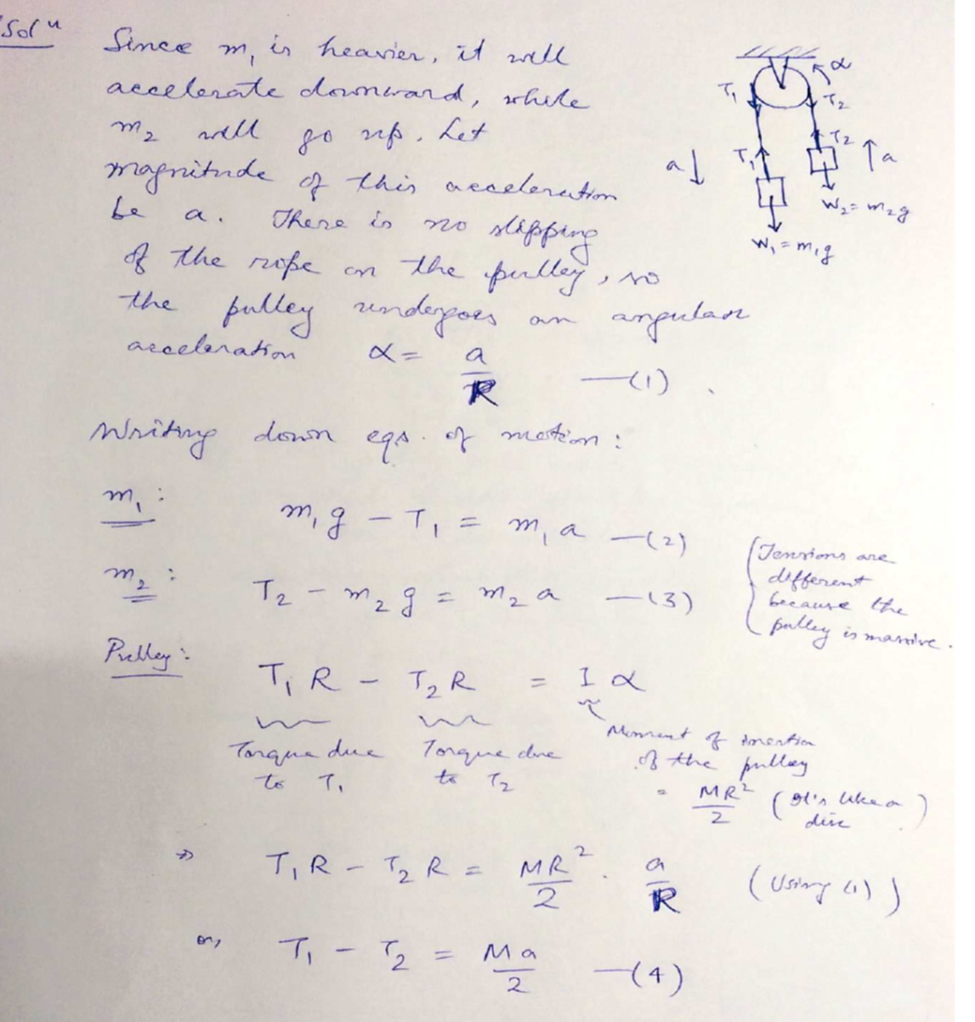 Solⁿ
Since m₁ is heavier, it will
accelerate downward, while
m₂ will go up. Let
magnitude of this acceleration
be a. There is no slipping
of the rope on the pulley, so
the pulley undergoes an angular
acceleration α = a/R —(1)
α
T₁ T₂
T₁ T₂
a↓ ↑a
W₂ = m₂g
W₁ = m₁g
Writing down eqs. of motion:
m₁: m₁g − T₁ = m₁a —(2)
m₂: T₂ − m₂g = m₂a —(3)
(Tensions are
different
because the
pulley is massive.
Pulley: T₁R − T₂R = Iα
Torque due Torque due
to T₁ to T₂
Moment of inertia
of the pulley
= MR²/2 (It's like a
disc)
⇒ T₁R − T₂R = MR²/2 · a/R (Using (1))
or, T₁ − T₂ = Ma/2 —(4)